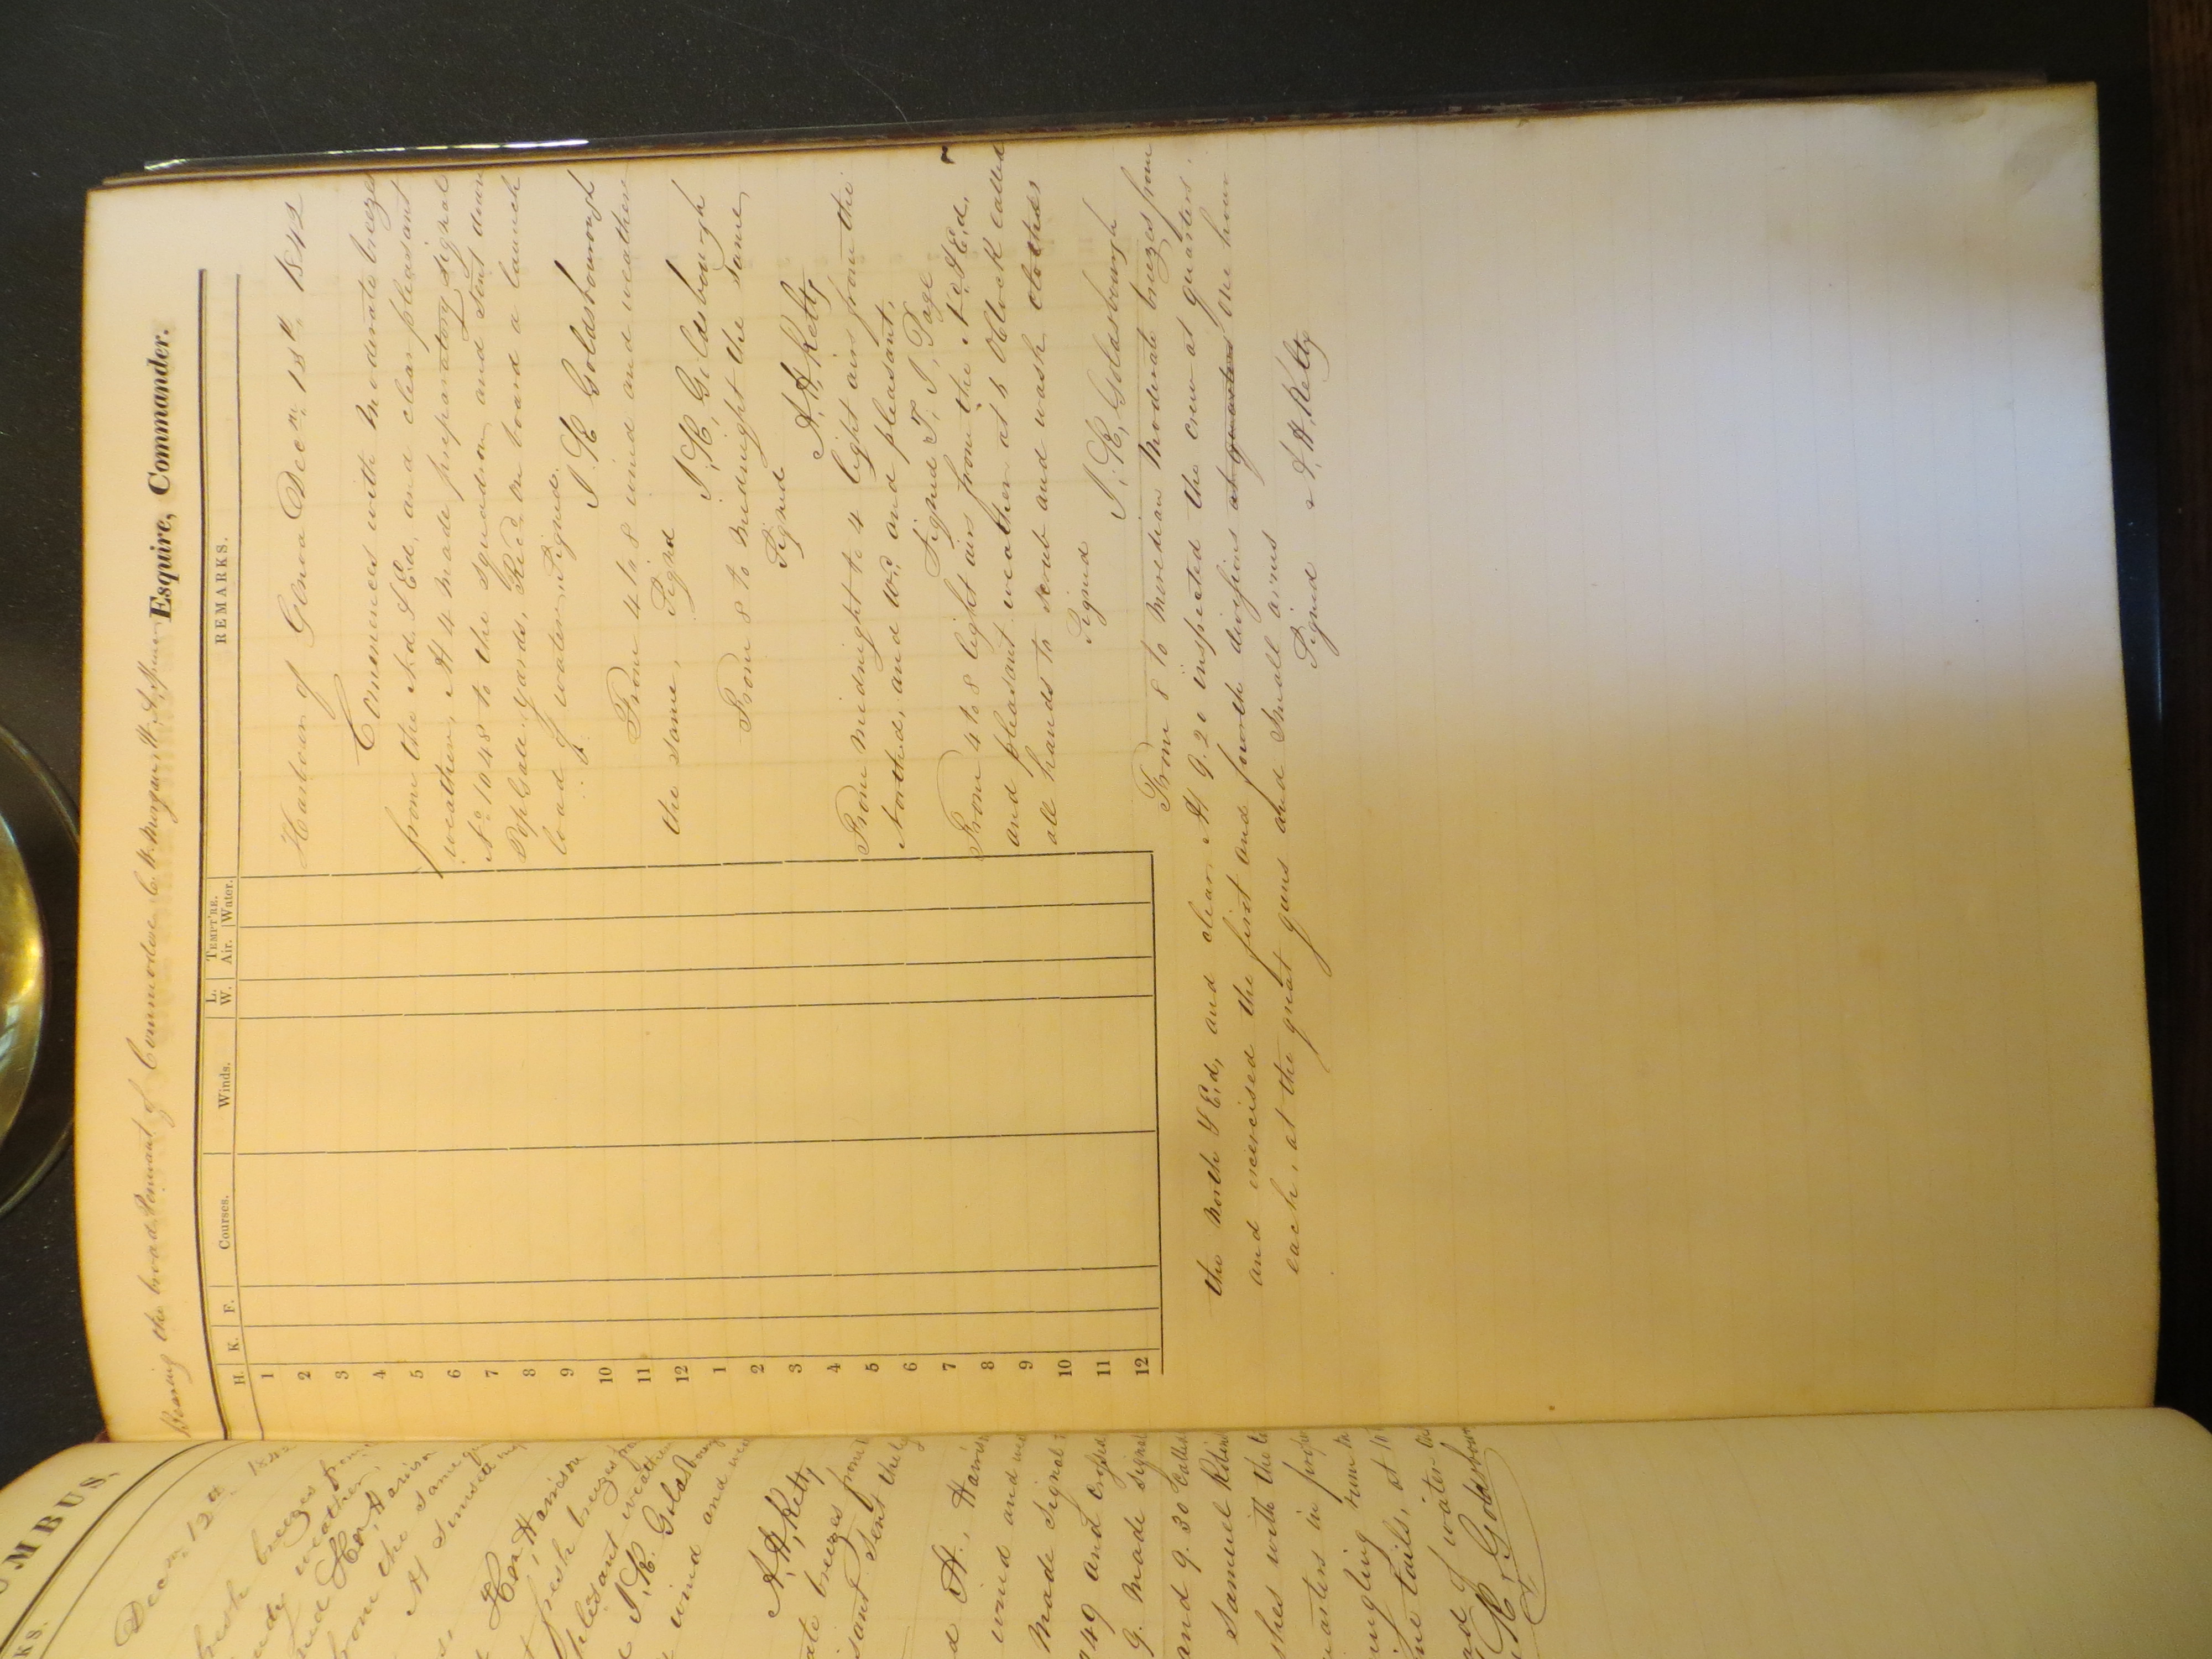 MBUS,
KS.
Decm. 12th 1842
Hon, Harrison
the same
At Sunset
Hon, Harrison
fresh breezes
pleasant weather
J. R. Goldsborough
wind and
A, H, Kelty
ate breezes from
sant Sent the
d H, Harris
wind and we
Made Signal
49 and Crossed
9. Made signal
and 9. 30 Called
Samuel
shes with the
uarters in
ingling rum
ine tails, at
ad of water
R, Goldsborou
Bearing the broad Pennant of Commodore C. W. Morgan, W. A. Spencer Esquire, Commander.
H. K. F. Courses. Winds. L. W. TEMPT'RE. Air. Water. REMARKS.
1
2
3
4
5
6
7
8
9
10
11
12
1
2
3
4
5
6
7
8
9
10
11
12
Harbour of Genoa Decm. 13th, 1842
Commences with Moderate breezes
from the Nd. & Ed, and clear pleasant
weather, At 4 Made preparatory signal
No. 1048 to the squadron and sent down
TopGall: yards, Recd on board a launch
load of water, Signed
J. R. Goldsborough
From 4 to 8 wind and weather
the same, Signd
J, R, Goldsborough
From 8 to Midnight the Same,
Signed
A, H, Kelty
From midnight to 4 light airs from the
Northd, and Wd, and pleasant,
Signed T, J, Page
From 4 to 8 light airs from the Nd & Ed,
and pleasant weather at 8 Oclock called
all hands to scrub and wash clothes
Signed
J, R, Goldsborough
From 8 to Meredian Moderate breezes from
the North & Ed, and clear, At 9. 20 inspected the crew at quarters.
and excercised the first and fourth divisions at quarters one hour
each, at the great guns and small arms
Signed A, H, Kelty